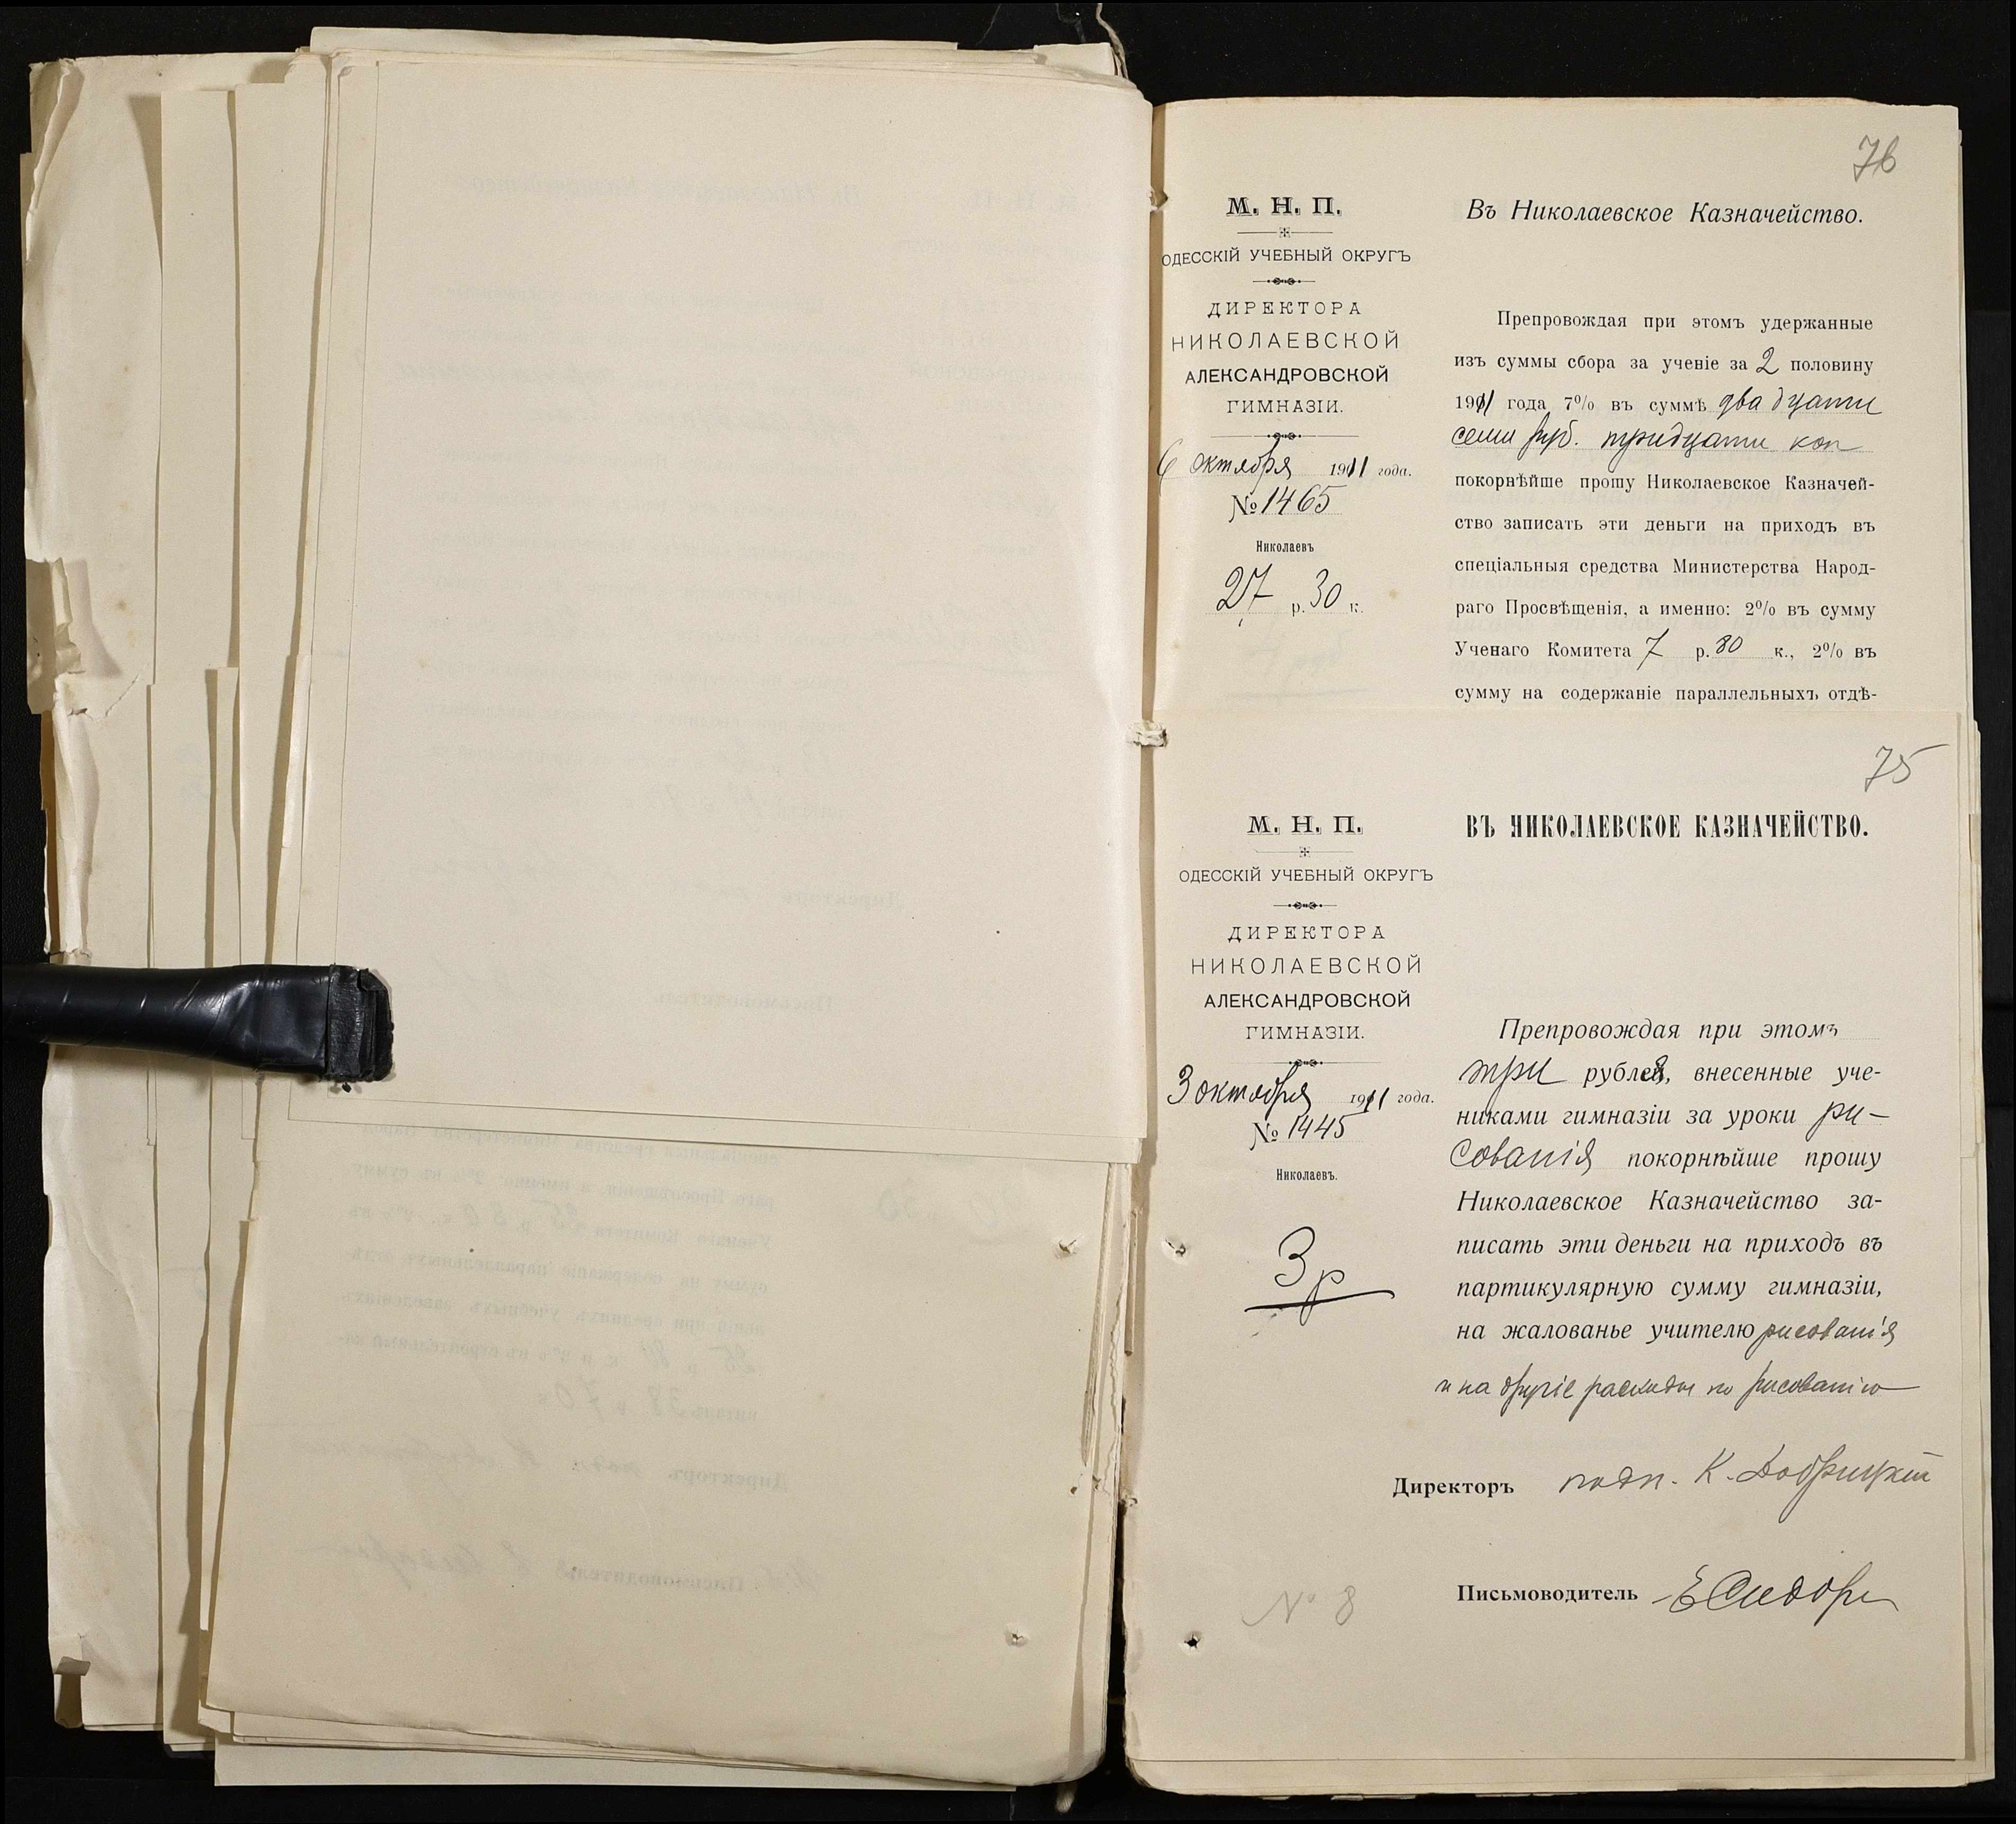 76
М. Н. П.
ОДЕССКІЙ УЧЕБНЫЙ ОКРУГЪ
ДИРЕКТОРА
НИКОЛАЕВСКОЙ
АЛЕКСАНДРОВСКОЙ
ГИМНАЗІИ.
6 октября 1911 года.
№ 1465
Николаевъ
27 р. 30 к.
Въ Николаевское Казначейство.
Препровождая при этомъ удержанные
изъ суммы сбора за ученіе за 2 половину
1911 года 7% въ суммѣ двадцати
семи руб. тридцати коп
покорнѣйше прошу Николаевское Казначей-
ство записать эти деньги на приходъ въ
спеціальныя средства Министерства Народ-
раго Просвѣщенія, а именно: 2% въ сумму
Ученаго Комитета 7 р. 80 к., 2% въ
сумму на содержаніе параллельныхъ отдѣ-
75
М. Н. П.
ОДЕССКІЙ УЧЕБНЫЙ ОКРУГЪ
ДИРЕКТОРА
НИКОЛАЕВСКОЙ
АЛЕКСАНДРОВСКОЙ
ГИМНАЗІИ.
3 октября 1911 года.
№ 1445
Николаевъ.
3 р
ВЪ НИКОЛАЕВСКОЕ КАЗНАЧЕЙСТВО.
Препровождая при этомъ
три рубля, внесенные уче-
никами гимназіи за уроки ри-
сованія покорнѣйше прошу
Николаевское Казначейство за-
писать эти деньги на приходъ въ
партикулярную сумму гимназіи,
на жалованье учителю рисованія
и на другіе расходы по рисованію
Директоръ подп. К. Добрицкій
Письмоводитель Е Сидор
№ 8